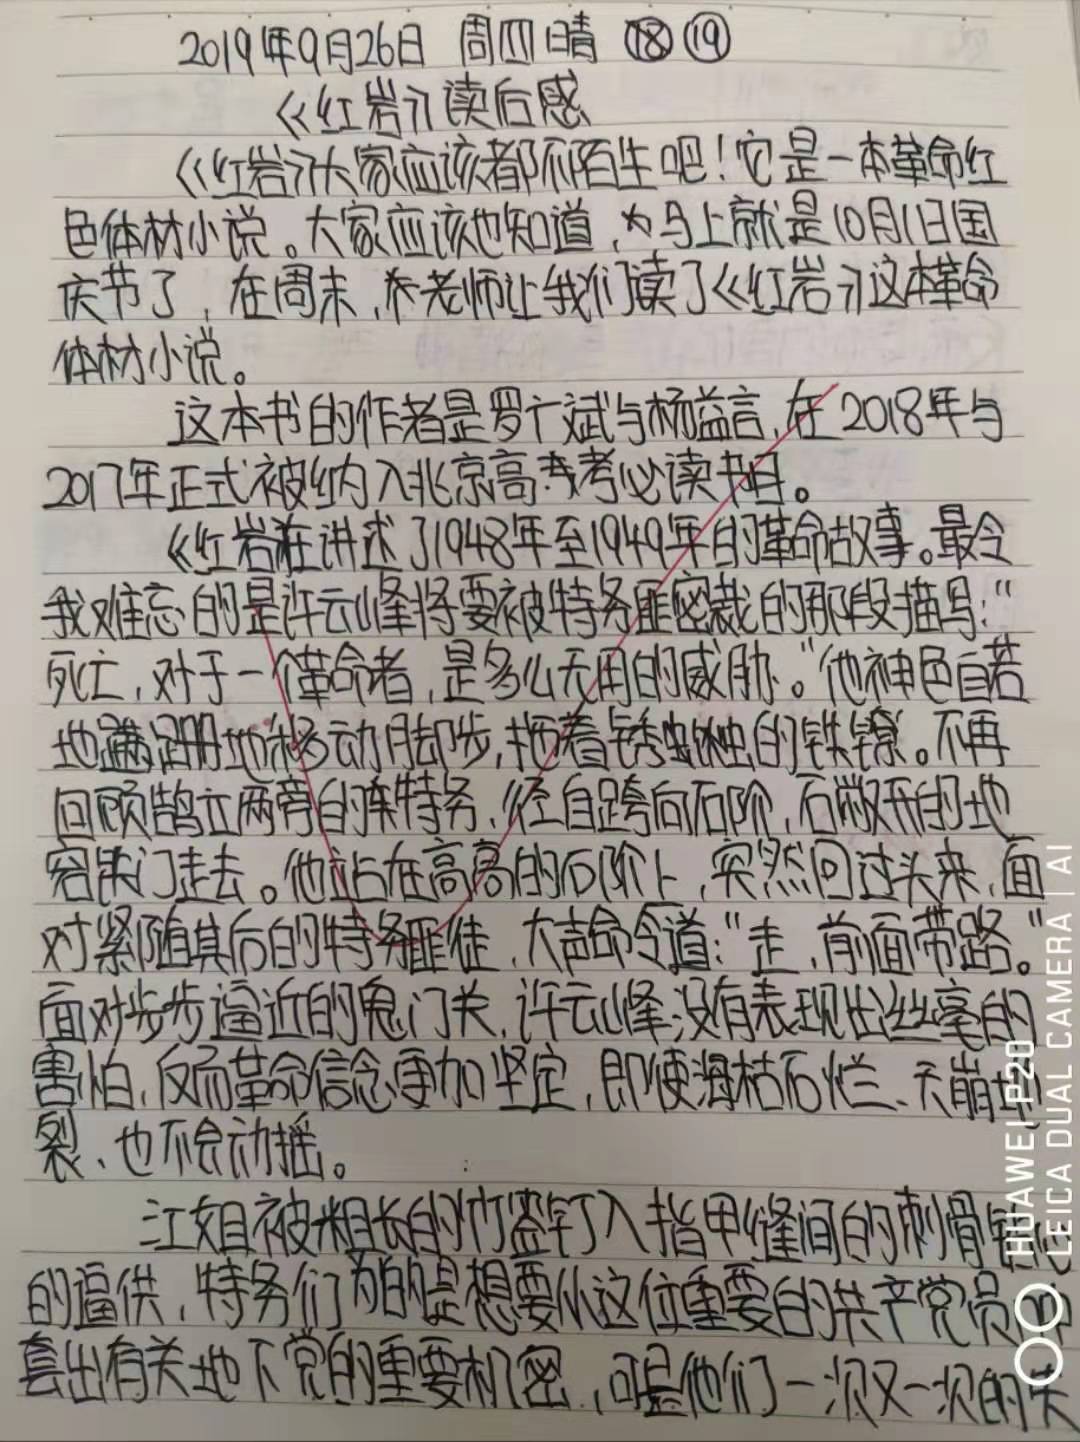 2019年9月26日 周四 晴 ⑱ ⑲
《红岩》读后感
《红岩》大家应该都不陌生吧！它是一本革命红
色体材小说。大家应该也知道，为马上就是10月1日国
庆节了，在周末，乔老师让我们读了《红岩》这本革命
体材小说。
这本书的作者是罗广斌与杨益言，在2018年与
2017年正式被纳入北京高考必读书目。
《红岩》讲述了1948年至1949年的革命故事。最令
我难忘的是许云峰将要被特务匪密裁的那段描写：“
死亡，对于一个革命者，是多么无用的威胁。”他神色自若
地蹒跚地移动脚步，拖着锈蚀的铁镣。不再
回顾鹄立两旁的特务，径自跨向石阶，向敞开的地
窖铁门走去。他站在高高的石阶上，突然回过头来，面
对紧随其后的特务匪徒，大声命令道：“走，前面带路。”
面对步步逼近的鬼门关，许云峰没有表现出丝毫的
害怕，反而革命信念更加坚定，即使海枯石烂、天崩地
裂、也不会动摇。
江姐被粗长的竹签钉入指甲缝间的刺骨
的逼供，特务们为的是想要从这位重要的共产党员
套出有关地下党的重要机密，可是他们一次又一次的失
HUAWEI P20
LEICA DUAL CAMERA | AI